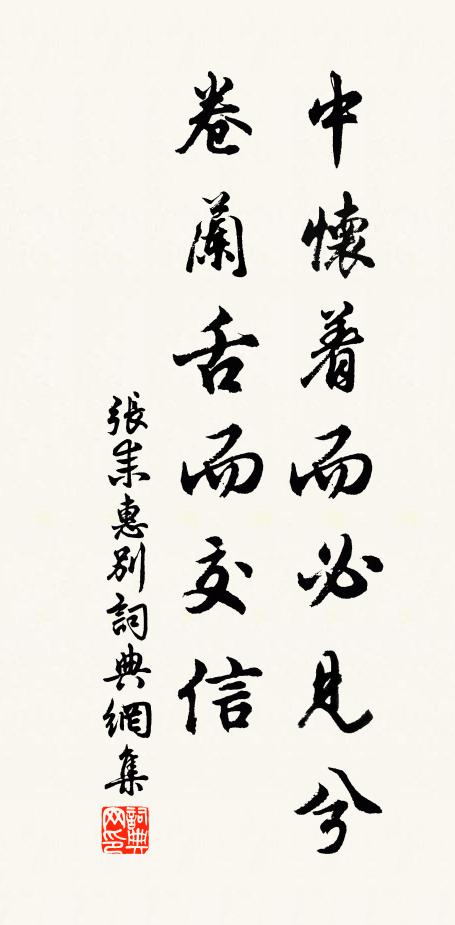 中懷着而必見兮
卷蘭舌而交信
張耒惠別詞典網集
詞典网印